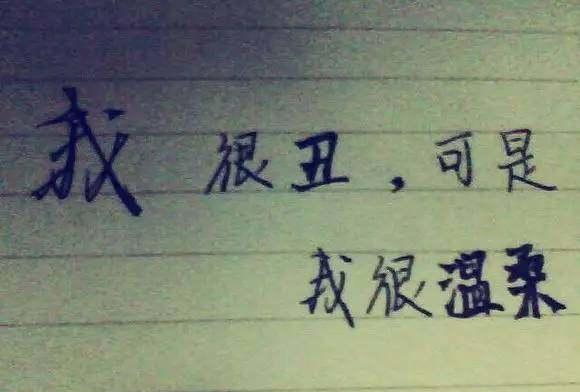 我很丑，可是
我很温柔